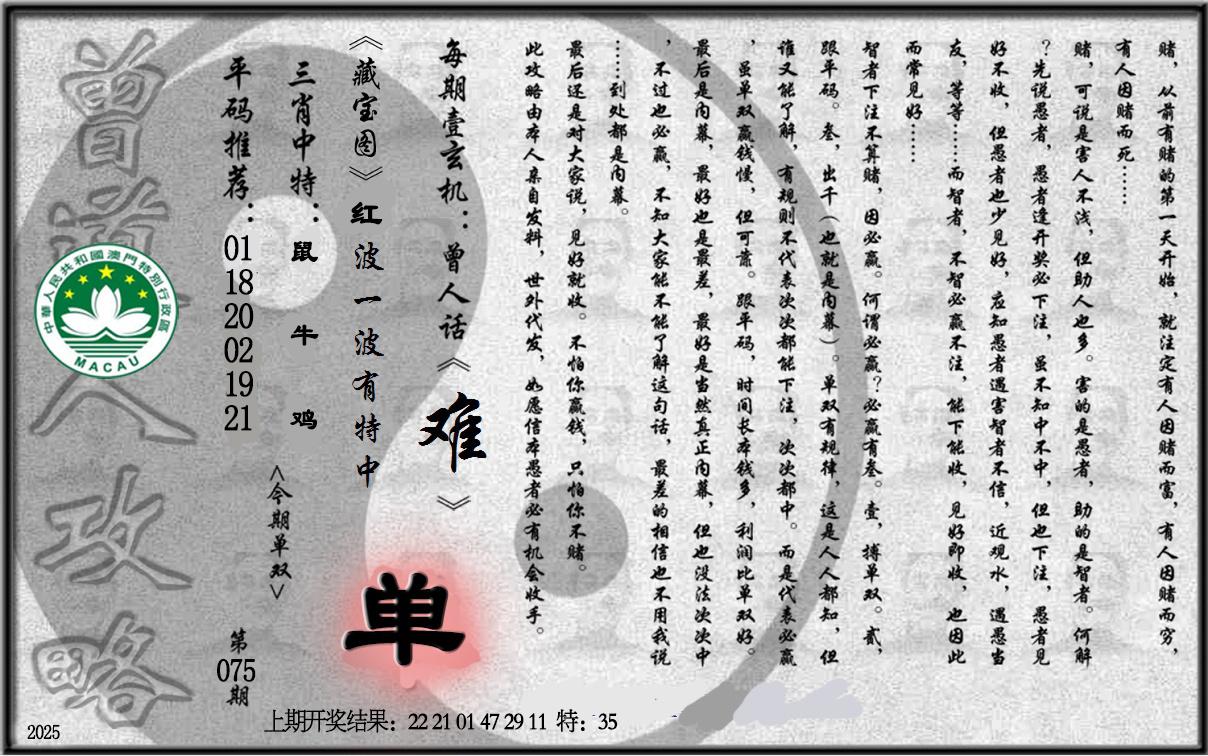 赌，从前有赌的第一天开始，就注定有人因赌而富，有人因赌而穷，
有人因赌而死……
赌，可说是害人不浅，但助人也多。害的是愚者，助的是智者。何解
？先说愚者，愚者逢开奖必下注，虽不知中不中，但也下注，愚者见
好不收，但愚者也少见好，应知愚者遇害智者不信，近观水，遇愚当
友，等等……而智者，不智必赢不注，能下能收，见好即收，也因此
而常见好……
智者下注不算赌，因必赢。何谓必赢？必赢有叁。壹，搏单双。贰，
跟平码。叁，出千（也就是内幕）。单双有规律，这是人人都知，但
谁又能了解，有规则不代表次次都能下注，次次都中。而是代表必赢
，虽单双赢钱慢，但可靠。跟平码，时间长本钱多，利润比单双好。
最后是内幕，最好也是最差，最好是当然真正内幕，但也没法次次中
，不过也必赢，不知大家能不能了解这句话，最差的相信也不用我说
……到处都是内幕。
最后还是对大家说，见好就收。不怕你赢钱，只怕你不赌。
此攻略由本人亲自发料，世外代发，如愿信本愚者必有机会收手。
每期壹玄机：曾人话《难》
《藏宝图》红波一波有特中
单
三肖中特：鼠牛鸡
<今期单双>
平码推荐：01 18 20 02 19 21
第075期
曾道人攻略
中華人民共和國澳門特別行政區
MACAU
2025
上期开奖结果：22 21 01 47 29 11 特：35